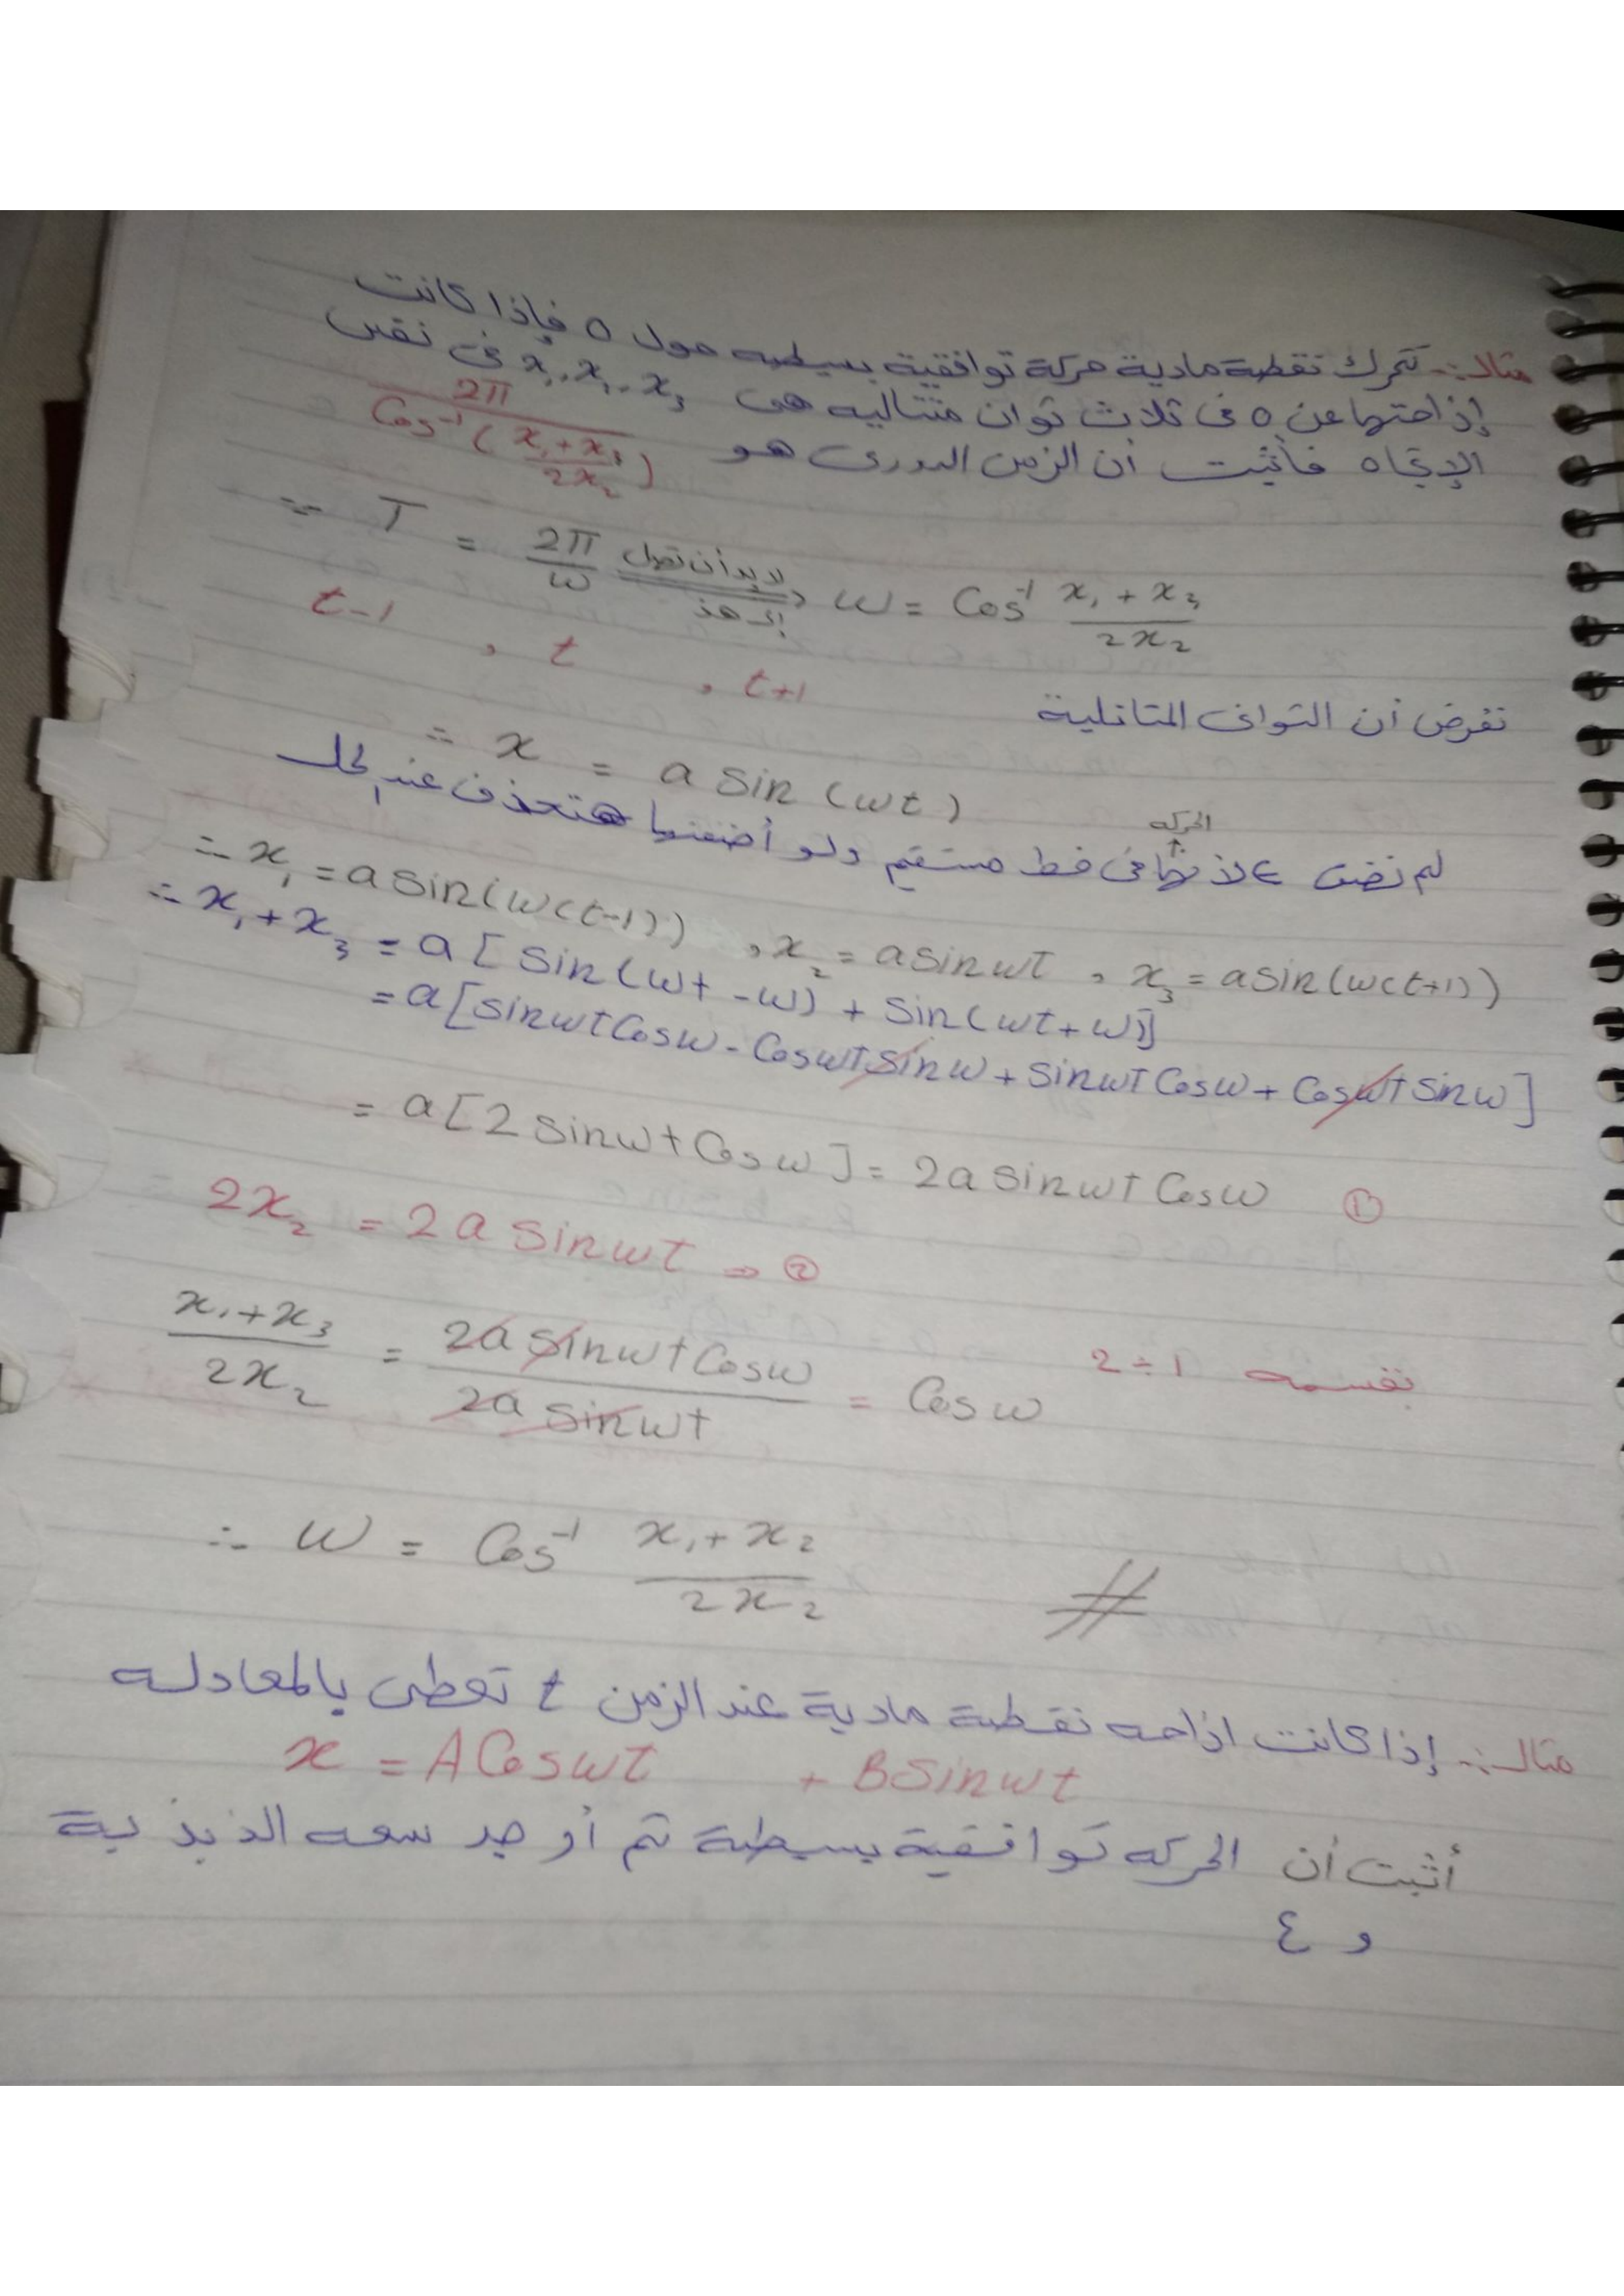 مثال:- تتحرك نقطة مادية حركة توافقية بسيطه حول o فإذا كانت
إزاحتها عن o فى ثلاث ثوان متتاليه هى x₁, x₁, x₃ فى نفس
الإتجاه فأثبت أن الزمن الدورى هو 2π / Cos⁻¹ ( (x₁ + x₃) / 2x₂ )
∵ T = 2π / ω لابد أن نصل إلى هذا ω = Cos⁻¹ (x₁ + x₃) / 2x₂
نفرض أن الثوانى المتتالية t-1 , t , t+1
∵ x = a sin (ωt)
الحركه
لم نضف ε لأنها فى خط مستقيم ولو أضفنها هتحذف عند الحل
∴ x₁ = a sin(ω(t-1)) , x₂ = a sin ωt , x₃ = a sin(ω(t+1))
∴ x₁ + x₃ = a [ sin (ωt - ω) + sin (ωt + ω)]
= a [sin ωt Cos ω - Cos ωt sin ω + sin ωt Cos ω + Cos ωt sin ω]
= a [2 sin ωt Cos ω] = 2a sin ωt Cos ω ①
2x₂ = 2 a sin ωt → ②
بقسمه 1 ÷ 2
(x₁ + x₃) / 2x₂ = 2a sin ωt Cos ω / 2a sin ωt = Cos ω
∴ ω = Cos⁻¹ (x₁ + x₂) / 2x₂ #
مثال:- إذا كانت ازاحه نقطة مادية عند الزمن t تعطى بالمعادله
x = A Cos ωt + B Sin ωt
أثبت أن الحركه توافقية بسيطة ثم أوجد سعه الذبذبة
و ع